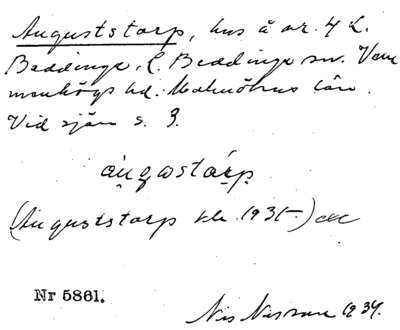 Auguststorp, hus å nr. 4 L.
Beddinge, L. Beddinge sn. Vem
menhögs hd. Malmöhus län.
Vid sjön s. 3.
áugostárp
(Auguststorp 1935-)
Nr 5861.
Nils 1934.